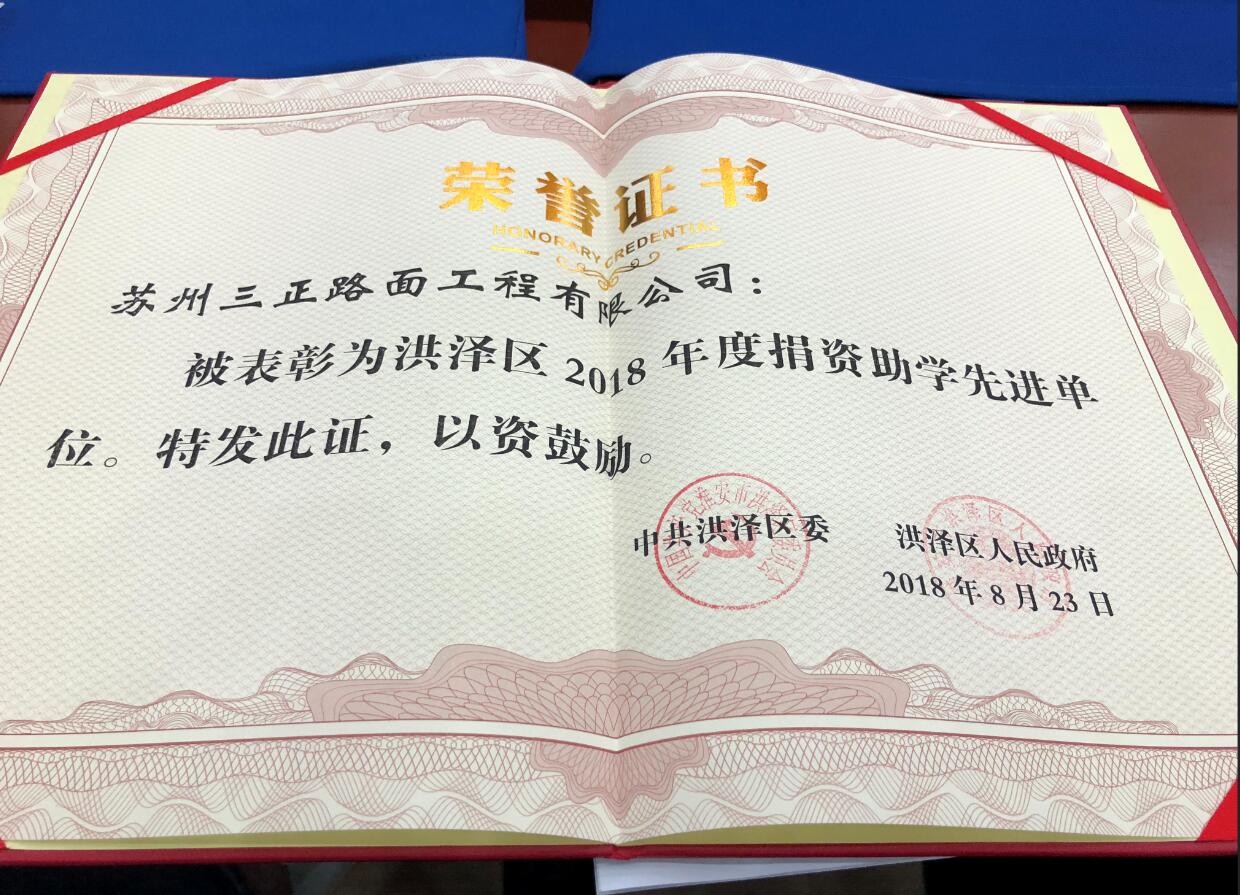 荣誉证书
HONORARY CREDENTIAL
苏州三正路面工程有限公司：
被表彰为洪泽区2018年度捐资助学先进单
位。特发此证，以资鼓励。
中共洪泽区委 洪泽区人民政府
2018年8月23日